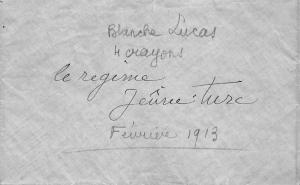 Blanche Lucas
4 crayons
le regime
Jeûne: turc
Février 1913